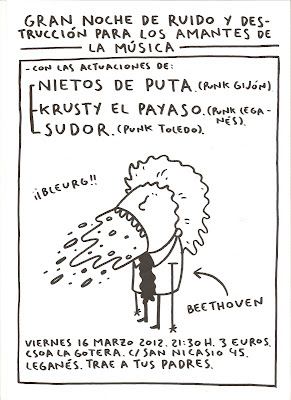 GRAN NOCHE DE RUIDO Y DES-
TRUCCIÓN PARA LOS AMANTES DE
LA MÚSICA
-CON LAS ACTUACIONES DE:
-NIETOS DE PUTA. (PUNK GIJÓN)
-KRUSTY EL PAYASO. (PUNK LEGA-
NÉS).
-SUDOR. (PUNK TOLEDO).
¡¡BLEURG!!
BEETHOVEN
VIERNES 16 MARZO 2012. 21:30 H. 3 EUROS.
CSOA LA GOTERA. C/ SAN NICASIO 45.
LEGANÉS. TRAE A TUS PADRES.